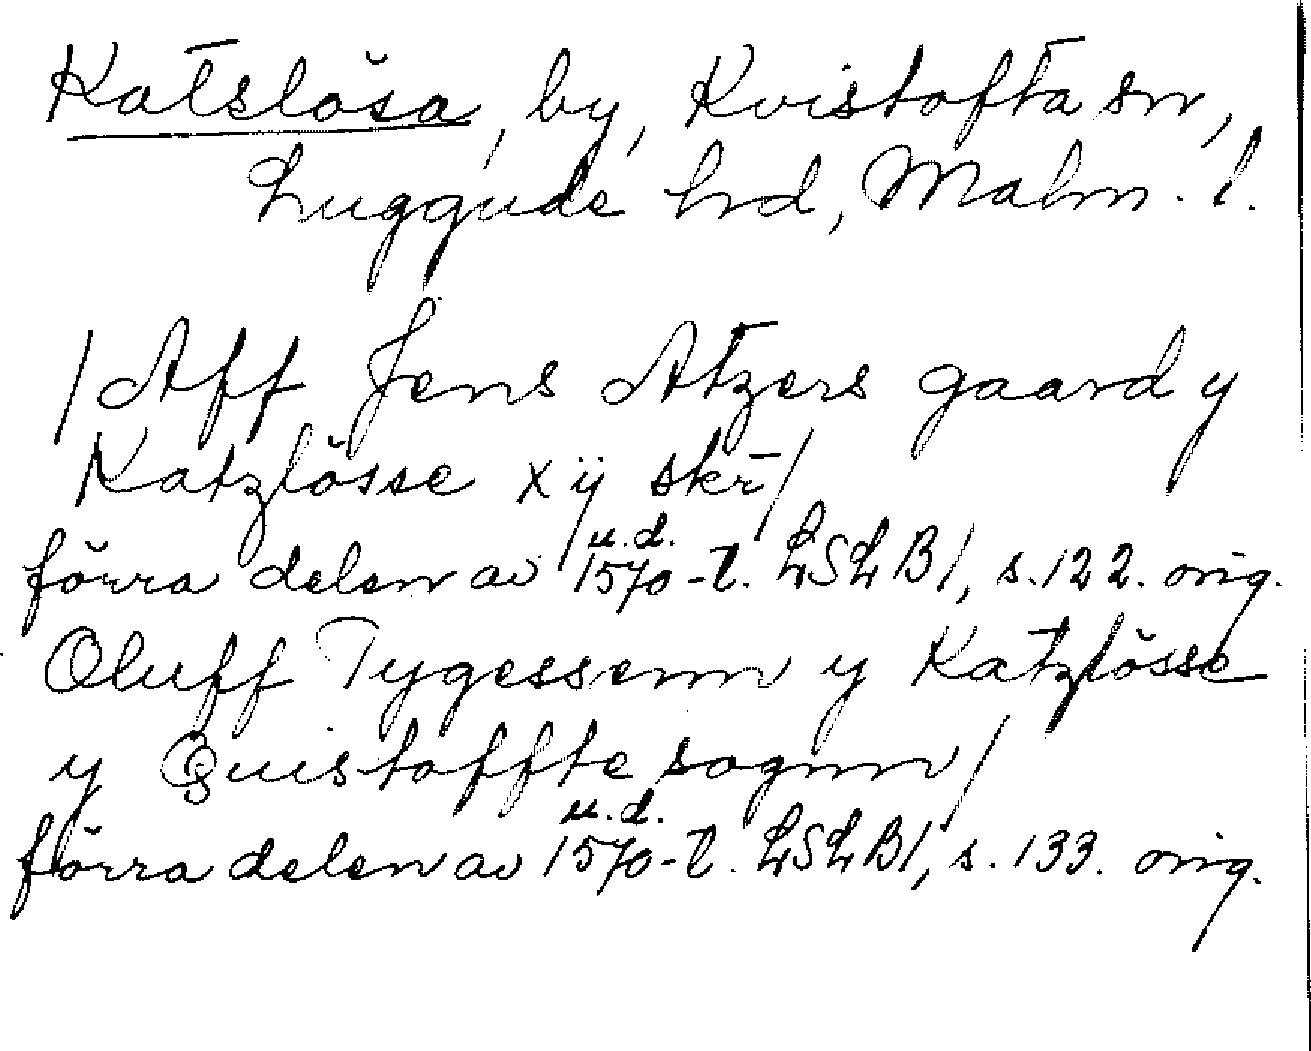 Katslösa, by, Kvistofta sn,
Luggude hd, Malm. l.
/Aff Jens Atzers gaard y
Katzlösse xÿ skr/
förra delen av 1570-t. u.d. LSLB1, s. 122. orig.
Oluff Tygessenn y Katzlösse
y Quistoffte sognn/
förra delen av 1570-t. u.d. LSLB1, s. 133. orig.